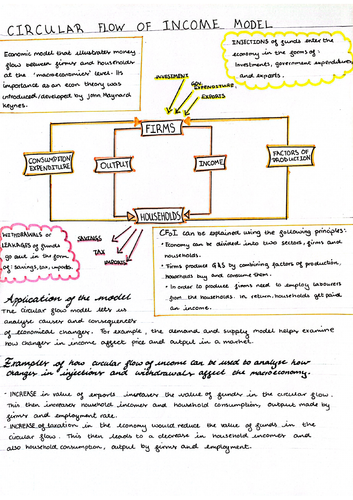 CIRCULAR FLOW OF INCOME MODEL
Economic model that illustrates money
flow between firms and households
at the 'macroeconomics' level. Its
importance as an econ theory was
introduced/developed by John Maynard
Keynes.
INJECTIONS of funds enter the
economy in the forms of:
Investments, government expenditure
and exports.
INVESTMENT
GOV.
EXPENDITURE
EXPORTS
FIRMS
CONSUMPTION
EXPENDITURE
OUTPUT
INCOME
FACTORS OF
PRODUCTION
HOUSEHOLDS
WITHDRAWALS or
LEAKAGES of funds
go out in the form
of: savings, tax, imports.
SAVINGS
TAX
IMPORTS
CFoI can be explained using the following principles:
• Economy can be divided into two sectors, firms and
households.
• Firms produce G&S by combining factors of production,
households buy and consume them.
• In order to produce firms need to employ labourers
from the households. In return, household get paid
an income.
Application of the model
The circular flow model lets us
analyse causes and consequences
of economical changes. For example, the demand and supply model helps examine
how changes in income affect price and output in a market.
Examples of how circular flow of income can be used to analyse how
changes in injections and withdrawals affect the macroeconomy.
- INCREASE in value of exports increases the value of funds in the circular flow.
This then increases household incomes and household consumption, output made by
firms and employment rate.
- INCREASE of taxation in the economy would reduce the value of funds in the
circular flow. This then leads to a decrease in household incomes and
also household consumption, output by firms and employment.